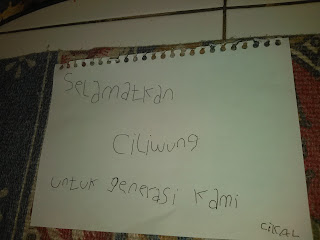 Selamatkan
Ciliwung
untuk generasi kami
CIKAL